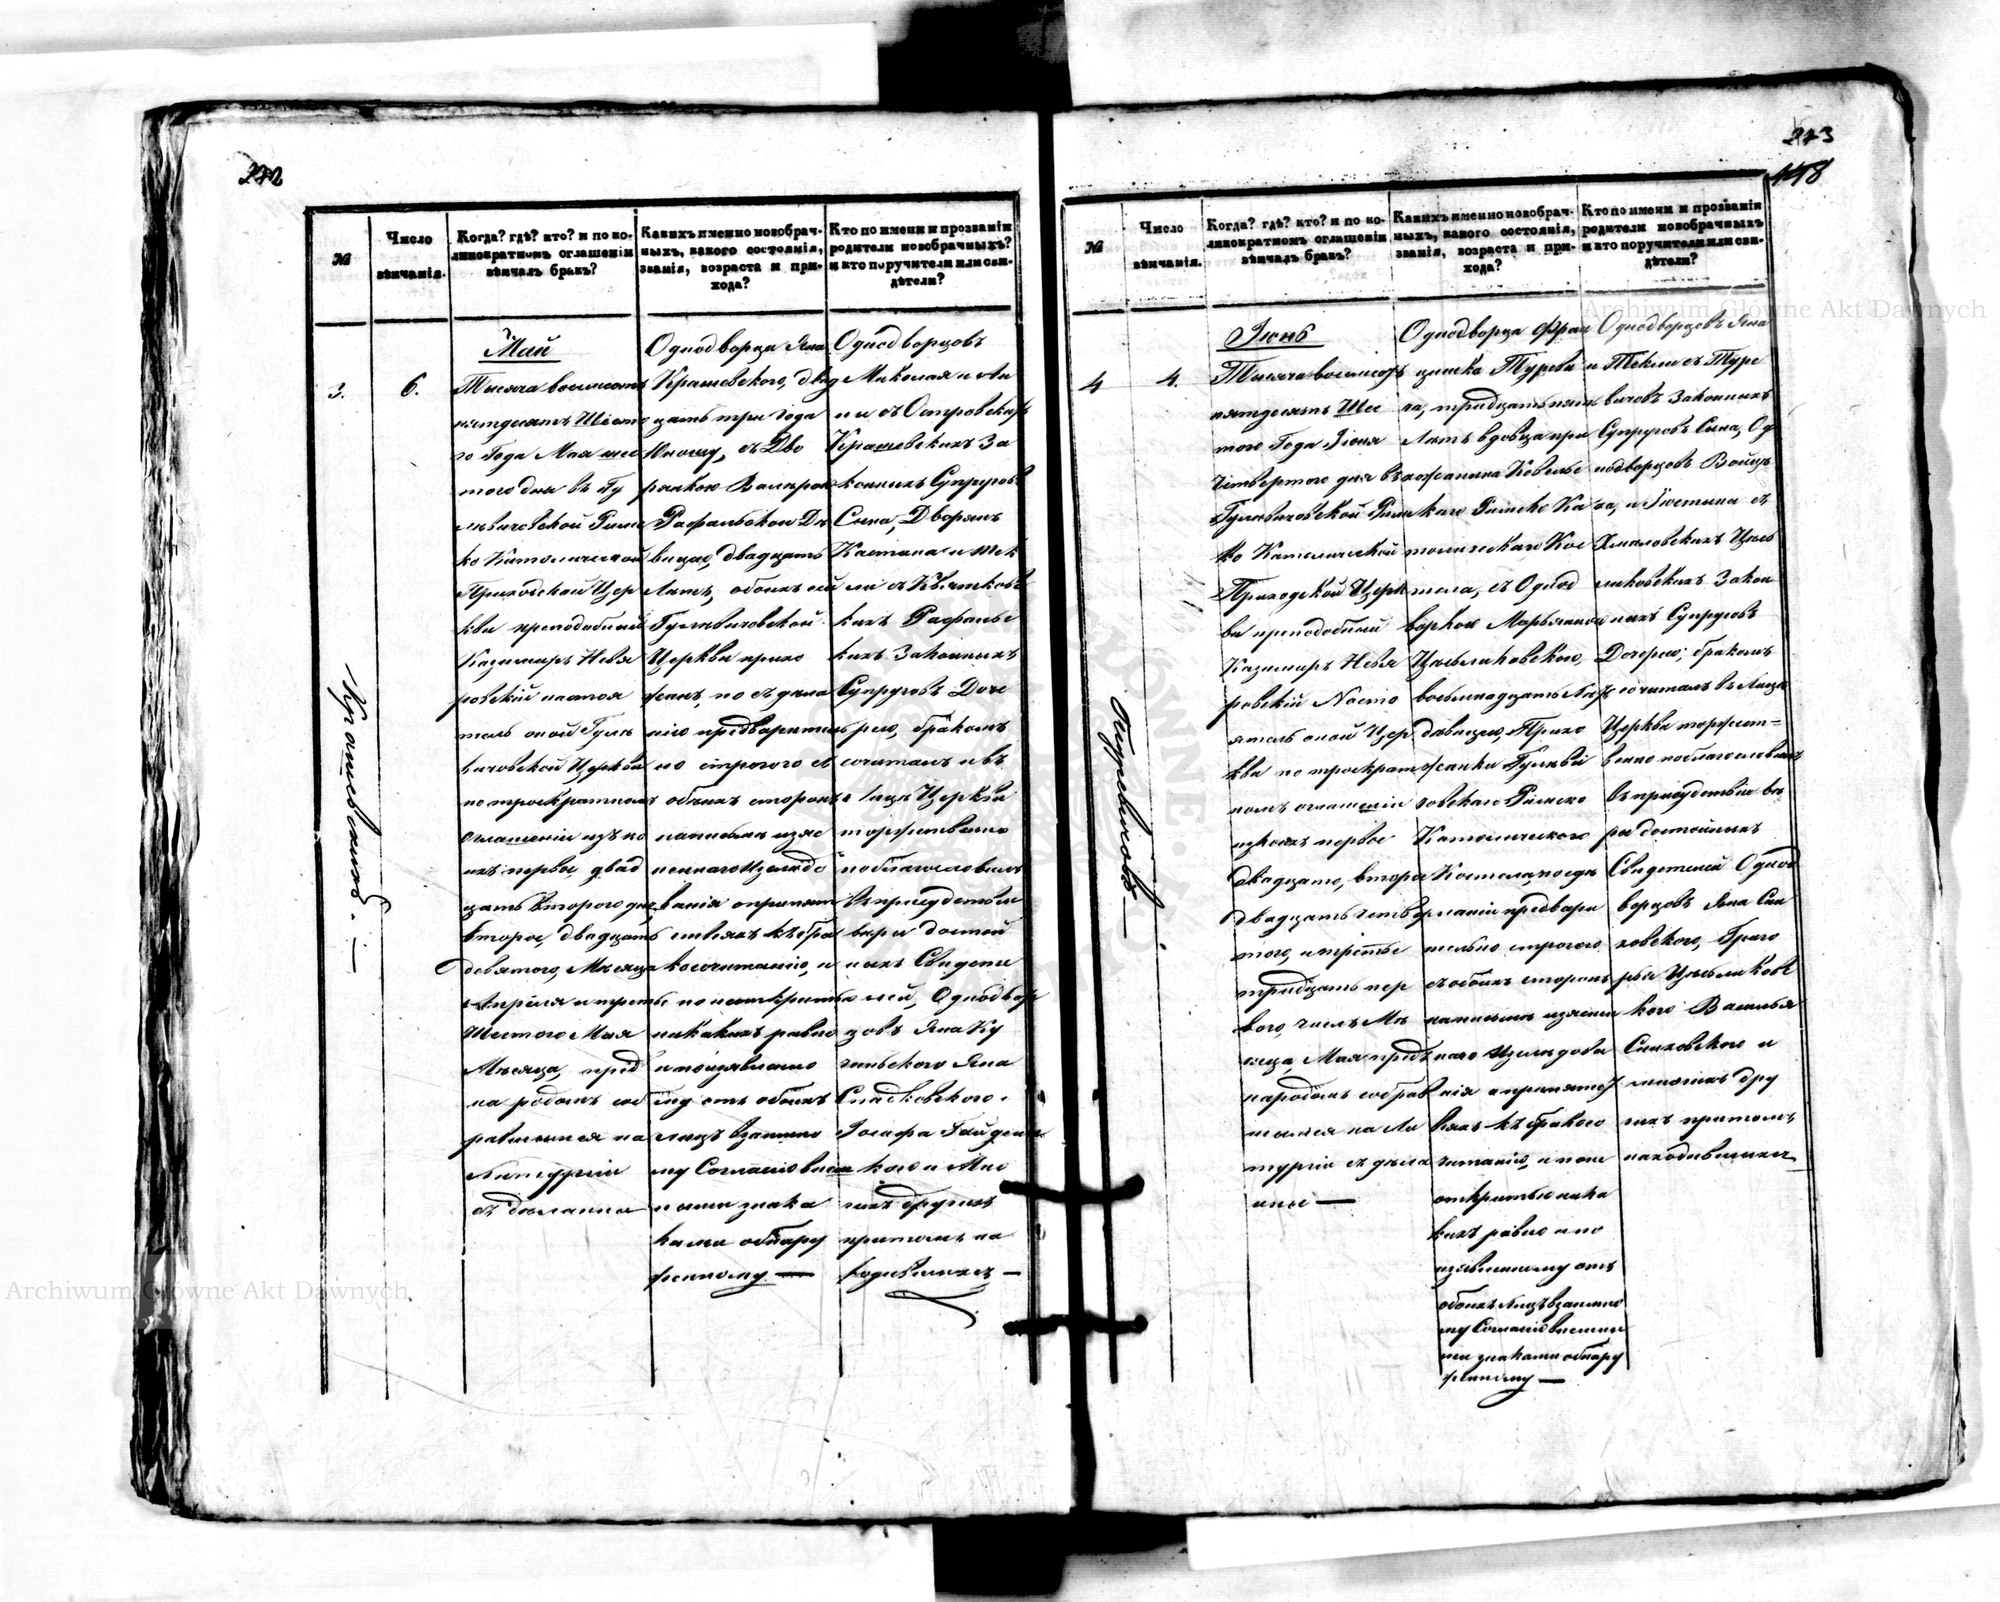 272
№
Число
вѣнчанія.
Когда? гдѣ? кто? и по ко-
ликократномъ оглашеніи
вѣнчалъ бракъ?
Какихъ именно новобрач-
ныхъ, какого состоянія,
званія, возраста и при-
хода?
Кто по имени и прозваніи
родители новобрачныхъ?
и кто поручители или сви-
дѣтели?
3.
6.
Крашевскихъ. —
Май
Тысяча восемсотъ
пятдесятъ Шесто
го Года Мая шес
того дня въ Гу
левичовской Римс
ко Католической
Приходской Цер
кви преподобный
Казимиръ Невя
ровскій настоя
тель оной Гуле
вичовской Церкви
по троекратномъ
оглашеніи изъ ко
ихъ первое двад
цать второго дня,
второе двадцать
девятого, Мѣсяца
Апрѣля и третье
Шестого Мая
Мѣсяца, предъ
народомъ соб
равшимся на
Литургіи
сдѣланныя
Однодворца Яна
Крашевского, двад
цать три года
Юношу, съ Дво
рянкою Валерою
Рафальскою Дѣ
вицею, двадцать
Лѣтъ, обоихъ сей
Гулевичовской
Церкви прихо
жанъ, по сдѣла
нію предваритель
но строгого съ
обоихъ сторонъ
написмѣ изяс
неннаго Изслѣдо
ванія о препят
ствіяхъ къ бра
косочитанію, и
по неоткрытію
никакихъ равно
и по изявленно
му отъ обоихъ
лицъ взаимно
му Согласію внеш
ними знака
ками обнару
женному —
Однодворцовъ
Миколая и Ан
ны съ Островскихъ
Крашевскихъ За
конныхъ Супруговъ
Сына, Дворянъ
Каетана и Тек
ли съ Квятковс
кихъ Рафальс
кихъ Законныхъ
Супруговъ Доче
рею, бракомъ
сочиталъ и въ
Лицѣ Церкви
торжественно
поблагословилъ
въ присудствіи
вѣры достой
ныхъ Свидете
лей, Однодвор
цовъ Яна Ку
чинского Яна
Сладковского,
Іосифа Гайденс
кого и Мно
гихъ другихъ
притомъ на
ходившихся —
273
148
№
Число
вѣнчанія.
Когда? гдѣ? кто? и по ко-
ликократномъ оглашеніи
вѣнчалъ бракъ?
Какихъ именно новобрач-
ныхъ, какого состоянія,
званія, возраста и при-
хода?
Кто по имени и прозваніи
родители новобрачныхъ
и кто поручители или сви-
дѣтели?
4
4.
Туревичовъ —
Іюнь
Тысяча восемсотъ
пятдесятъ Шес
того Года Іюня
Четвертого дня въ
Гулевичовской Римс
ко Католической
Приходской Церк
ви преподобный
Казимиръ Невя
ровскій Насто
ятель оной Цер
кви по троекрат
номъ оглашеніи
изкоихъ первое
двадцато, второе
двадцать четвер
того, и третье
тридцать пер
вого, числъ Мѣ
сяца, Мая предъ
народомъ собрав
шимся на Ли
тургіи сдѣла
ные —
Однодворца Фран
цишка Туреви
ча, тридцать пять
Лѣтъ вдовца при
хожанина Ковельс
кого Римско Ка
толическаго Кос
тела, съ Однод
воркою Марьянною
Цмельковского,
восьмнадцать Лѣтъ
дѣвицею, Прихо
жанки Гулеви
човского Римско
Католического
Костела, по сдѣ
ланіи предвари
тельно строгого
съ обоихъ сторонъ
написмѣ изясен
ного Изслѣдова
нія о препятст
віяхъ къ бракосо
читанію, и по не
открытью ника
кихъ равно и по
изявленному отъ
обоихъ Лицъ взаимно
му Согласію внешни
ми знаками обнару
женному —
Однодворцовъ Яна
и Теклы съ Туре
вичовъ Законныхъ
Супруговъ Сына, Од
нодворцовъ Войцѣ
ха, и Іюстины съ
Хмѣловскихъ Цмель
никовскихъ Закон
ныхъ Супруговъ
Дочерею; бракомъ
сочиталъ въ Лицѣ
Церкви торжест=
венно поблагословилъ
въ присудствіи вѣ
ры достойныхъ
Свидетелей Однод
ворцовъ Яна Сни
ховского, Григо
рья Цмеликовс
кого Василья
Сниховского и
многихъ дру
гихъ притомъ
находившихся
Archiwum Główne Akt Dawnych
Archiwum Główne Akt Dawnych